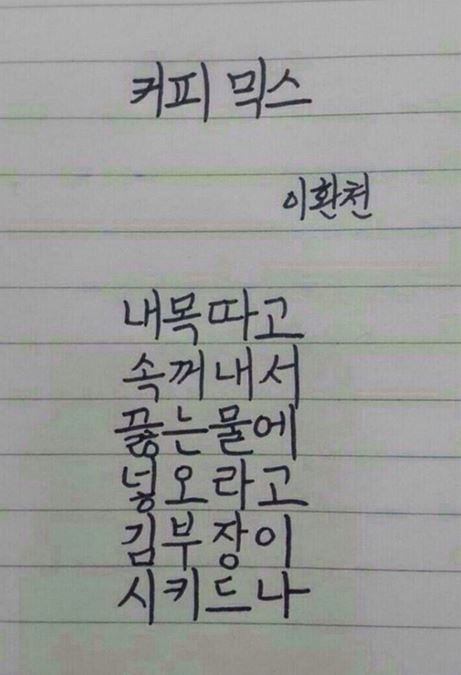 커피 믹스
이환천
내목따고
속꺼내서
끓는물에
넣오라고
김부장이
시키드나